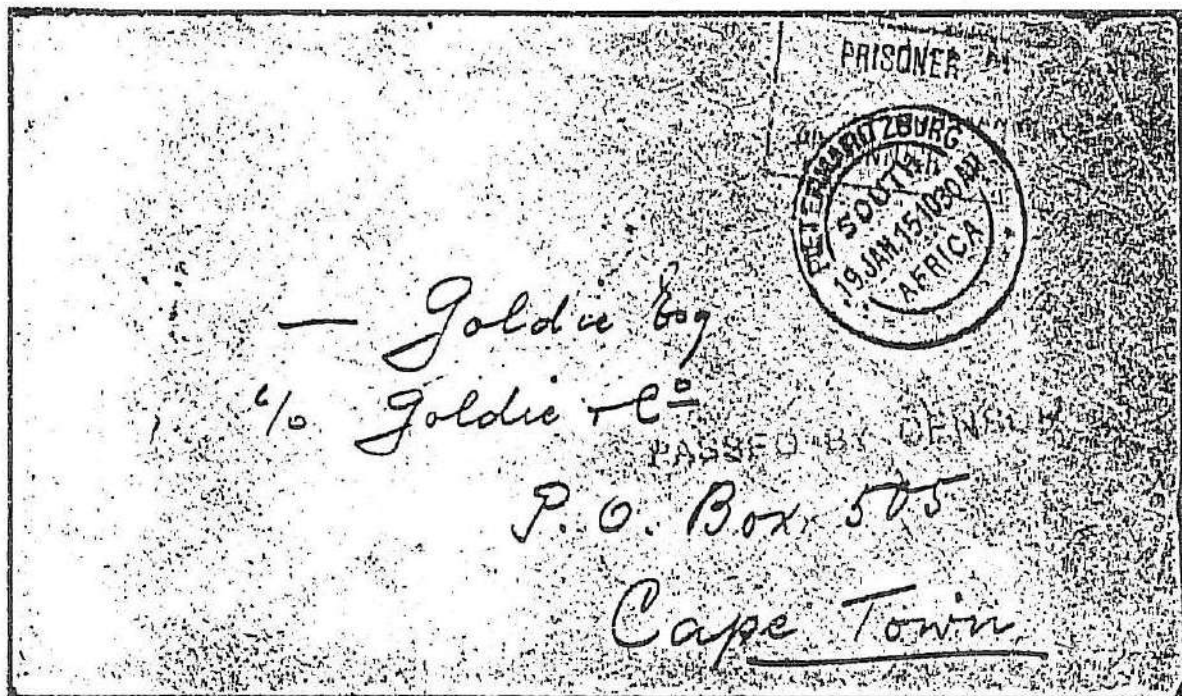 PRISONER
PIETERMARITZBURG
SOUTH
19 JAN.15·10 30 AM
AFRICA
— Goldie Esq
c/o Goldie + Co
PASSED BY CENSOR
P. O. Box 505
Cape Town.